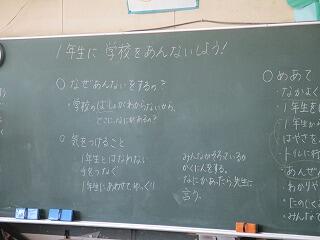 1年生に学校をあんないしよう！
○なぜあんないをするの？
・学校のばしょがわからないから、
どこになにがあるの？
○気をつけること
1年生とはなれない
手をつなぐ
1年生にあわせてゆっくり
みんながそろっているか
かくにんをする。
なにかあったら先生に
言う。
○めあて
・なかよく
・1年生を
1年生が
はやさを
トイレに行
・あんぜん
・わかりや
・たのしく
・みんなで